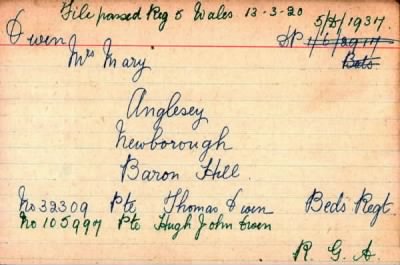 File passed Reg 5 Wales 13-3-20
5/D/1937
Owen
SP 1/6/2917
Mrs Mary
Beds.
Anglesey
Newborough
Baron Hill.
No 32309 Pte Thomas Owen Beds Regt.
No 105997 Pte Hugh John Owen
R. G. A.